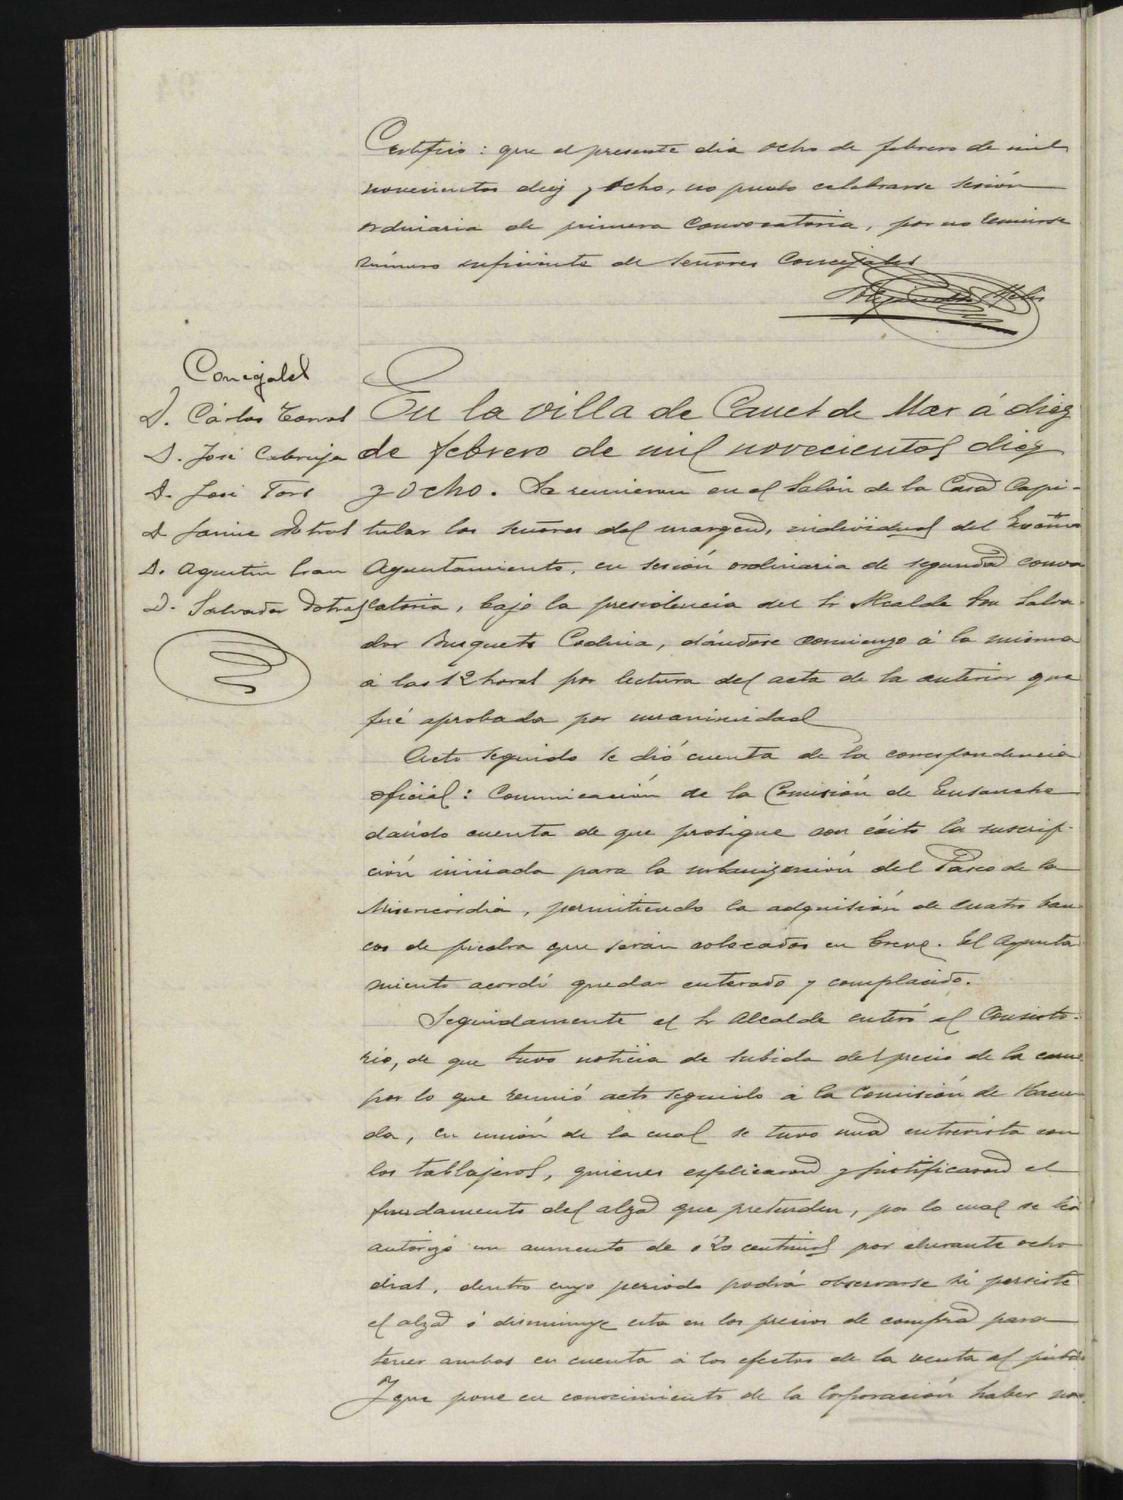 Certifico: que el presente dia ocho de febrero de mil
novecientos diez y ocho, no pudo celebrarse sesión
ordinaria de primera convocatoria, por no reunirse
número suficiente de Señores Concejales
Concejales
D. Cárlos Torrol
D. José Cabruja
D. José Fors
D. Jaime Dotras
D. Agustin Grau
D. Salvador Dotras
En la villa de Canet de Mar á diez
de febrero de mil novecientos diez
y ocho. Se reunieron en el Salón de la Casa Capi-
tular los señores del margen, individuos del Excmo
Ayuntamiento, en sesión ordinaria de segunda convo
catoria, bajo la presidencia del Sr Alcalde Don Salva-
dor Busquets Codina, dándose comienzo á la misma
á las 12 horas por lectura del acta de la anterior que
fué aprobada por unanimidad
Acto seguido se dió cuenta de la correspondencia
oficial: Comunicación de la Comisión de Ensanche
dando cuenta de que prosigue con éxito la suscrip-
ción iniciada para la urbanización del Paseo de la
Misericordia, permitiendo la adquisión de cuatro ban-
cos de piedra que serán colocados en breve. El Ayunta
miento acordó quedar enterado y complacido.
Seguidamente el Sr Alcalde enteró al Consisto-
rio, de que tuvo noticia de subida del precio de la carne
por lo que reunió acto seguido á la Comisión de Hacien-
da, en unión de la cual se tuvo una entrevista con
los tablajeros, quienes explicaron y justificaron el
fundamento del alza que pretenden, por lo cual se les
autorizó un aumento de 0'20 centimos por durante ocho
dias, dentro cuyo periodo podrá observarse si persiste
el alza ó disminuye esta en los precios de compra para
tener ambos en cuenta á los efectos de la venta al publi
Y que pone en conocimiento de la Corporación haber no